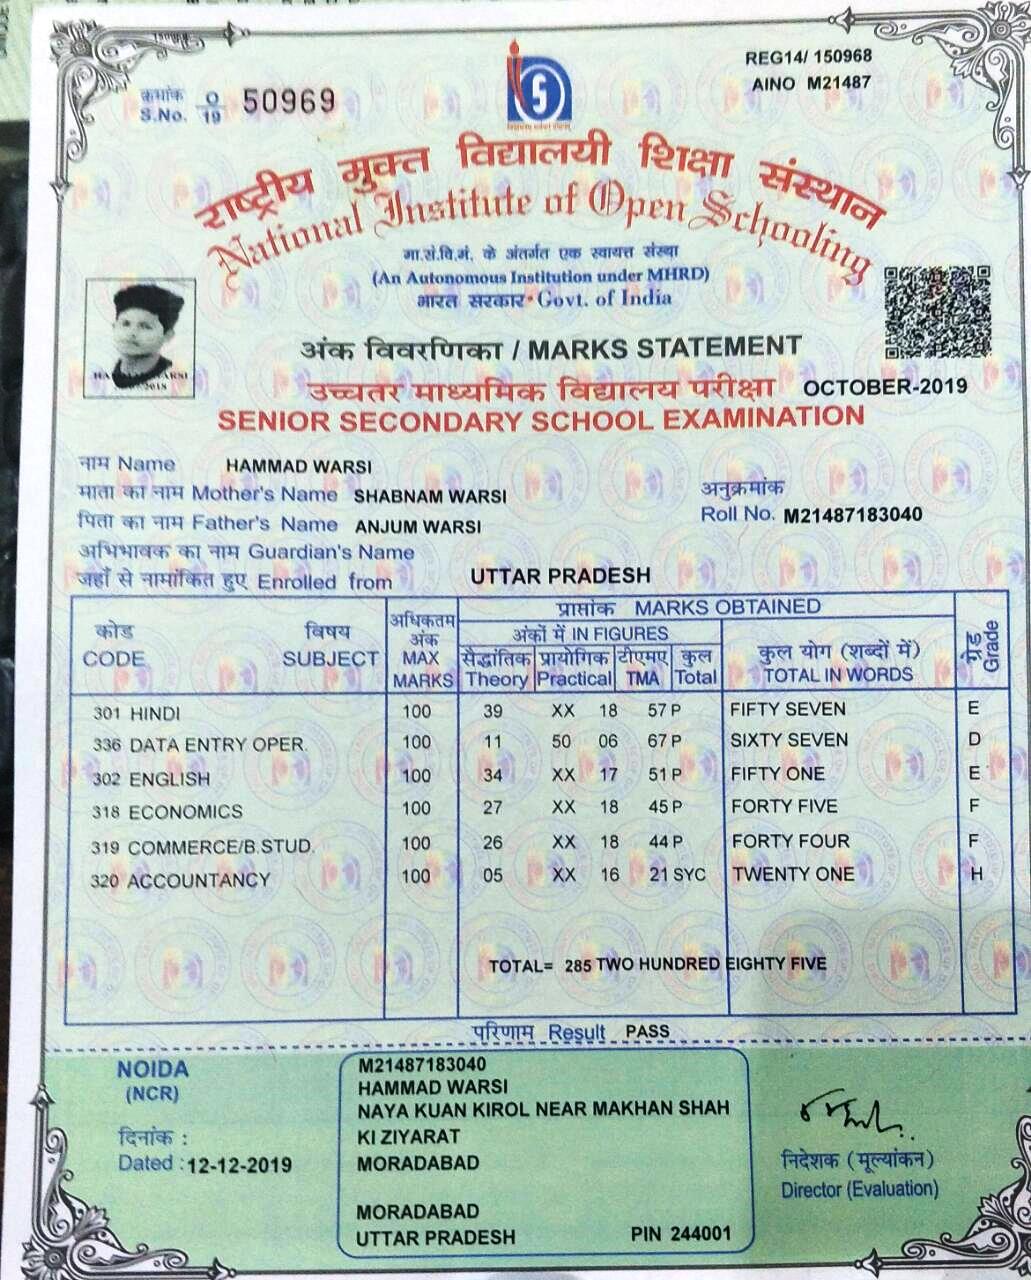 REG14/ 150968
AINO M21487
क्रमांक O
S.No. 19 50969
राष्ट्रीय मुक्त विद्यालयी शिक्षा संस्थान
National Institute of Open Schooling
मा.सं.वि.मं. के अंतर्गत एक स्वायत्त संस्था
(An Autonomous Institution under MHRD)
भारत सरकार • Govt. of India
अंक विवरणिका / MARKS STATEMENT
उच्चतर माध्यमिक विद्यालय परीक्षा OCTOBER-2019
SENIOR SECONDARY SCHOOL EXAMINATION
नाम Name HAMMAD WARSI
माता का नाम Mother's Name SHABNAM WARSI
अनुक्रमांक
पिता का नाम Father's Name ANJUM WARSI
Roll No. M21487183040
अभिभावक का नाम Guardian's Name
जहाँ से नामांकित हुए Enrolled from UTTAR PRADESH
प्राप्तांक MARKS OBTAINED
कोड विषय अधिकतम अंक अंकों में IN FIGURES कुल योग (शब्दों में) ग्रेड
CODE SUBJECT MAX MARKS सैद्धांतिक प्रायोगिक टीएमए कुल TOTAL IN WORDS Grade
Theory Practical TMA Total
301 HINDI 100 39 XX 18 57 P FIFTY SEVEN E
336 DATA ENTRY OPER. 100 11 50 06 67 P SIXTY SEVEN D
302 ENGLISH 100 34 XX 17 51 P FIFTY ONE E
318 ECONOMICS 100 27 XX 18 45 P FORTY FIVE F
319 COMMERCE/B.STUD. 100 26 XX 18 44 P FORTY FOUR F
320 ACCOUNTANCY 100 05 XX 16 21 SYC TWENTY ONE H
TOTAL= 285 TWO HUNDRED EIGHTY FIVE
परिणाम Result PASS
NOIDA
(NCR)
दिनांक :
Dated : 12-12-2019
M21487183040
HAMMAD WARSI
NAYA KUAN KIROL NEAR MAKHAN SHAH
KI ZIYARAT
MORADABAD
MORADABAD
UTTAR PRADESH PIN 244001
निदेशक (मूल्यांकन)
Director (Evaluation)